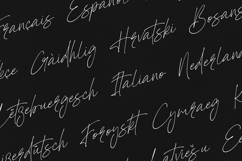 Français Español
Gàidhlig Hrvatski Bosans
Lëtzebuergesch Italiano Nederlan
Føroyskt Cymraeg K
Latviešu E